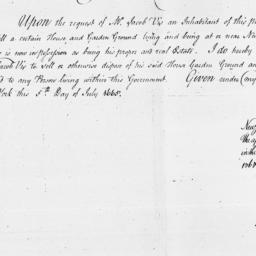 Upon the request of Mr. Jacob Vis an Inhabitant of this p
ll a certain House, and Garden Ground lying and being at or near New
is now in possession as being his proper and real Estate. I do hereby
Jacob Vis to sell or otherwise dispose of his said House Garden Ground and
d to any Person living within this Government. Given under my
York this 5th Day of July 1665.